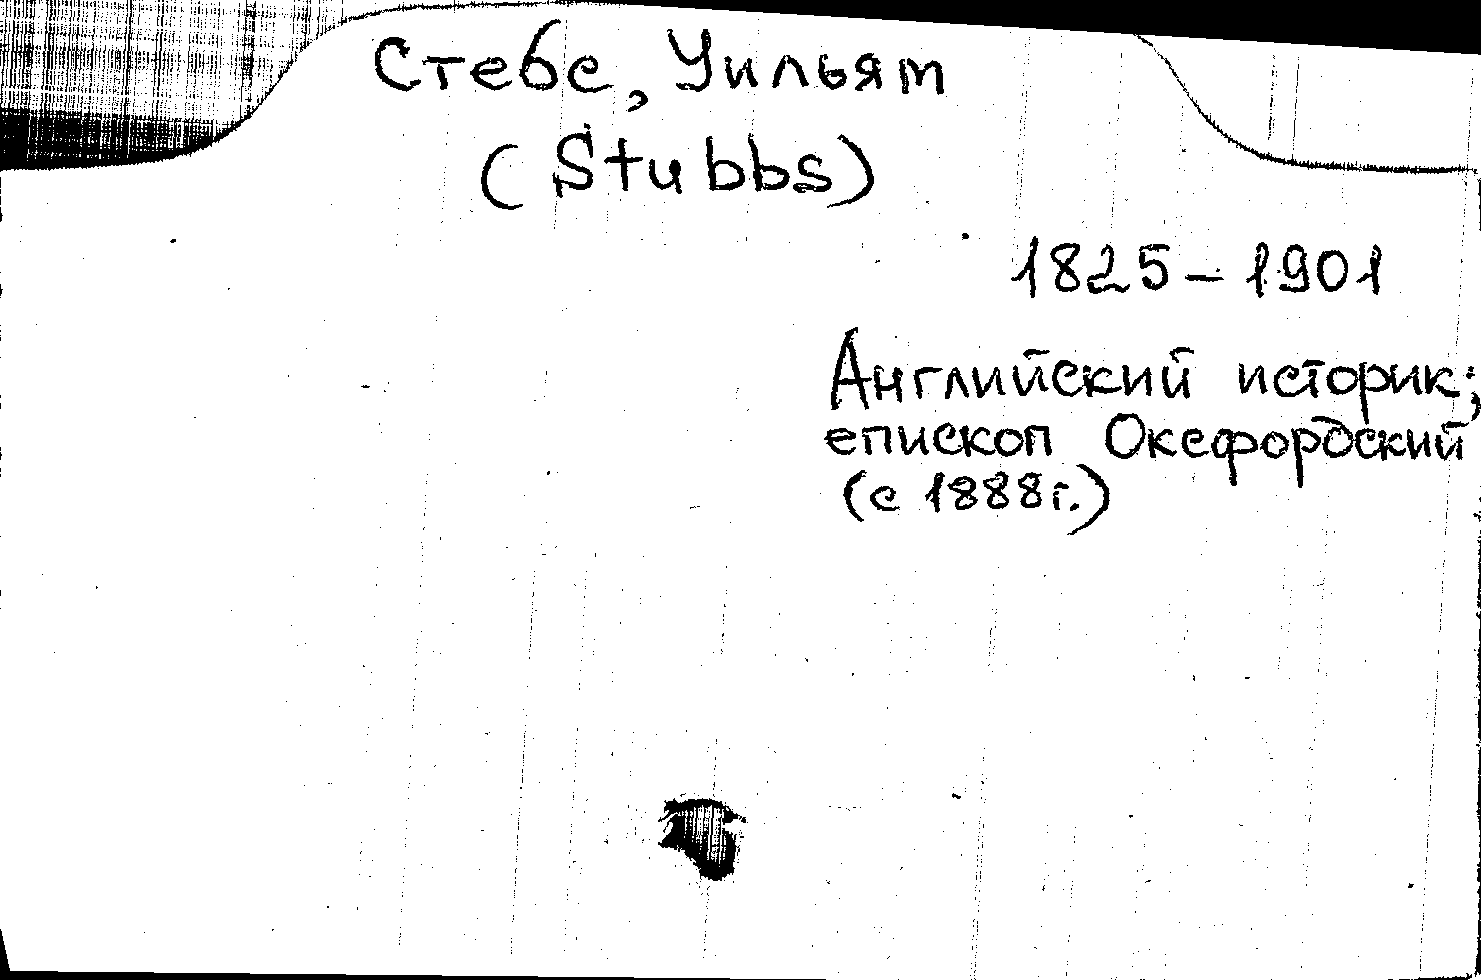 Стебс, Уильям
(Stubbs)
1825 – 1901
Английский историк;
епископ Оксфордский
(с 1888 г.)